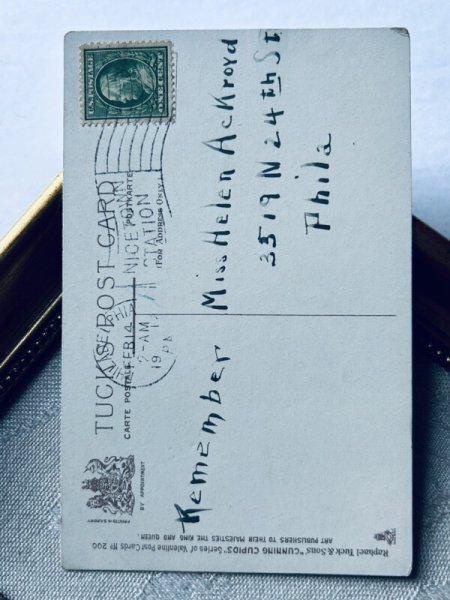 U.S. POSTAGE
ONE CENT
TUCK'S POST CARD
CARTE POSTALE
POSTKARTE
(FOR ADDRESS ONLY)
PRINTED IN SAXONY
BY APPOINTMENT
FEB 14
2-AM
19
PA
NICETOWN
STATION
Remember
Miss Helen Ackroyd
3519 N 24th St
Phila
Raphael Tuck & Sons' "CUNNING CUPIDS" Series of Valentine Post Cards Nº 200
ART PUBLISHERS TO THEIR MAJESTIES THE KING AND QUEEN.